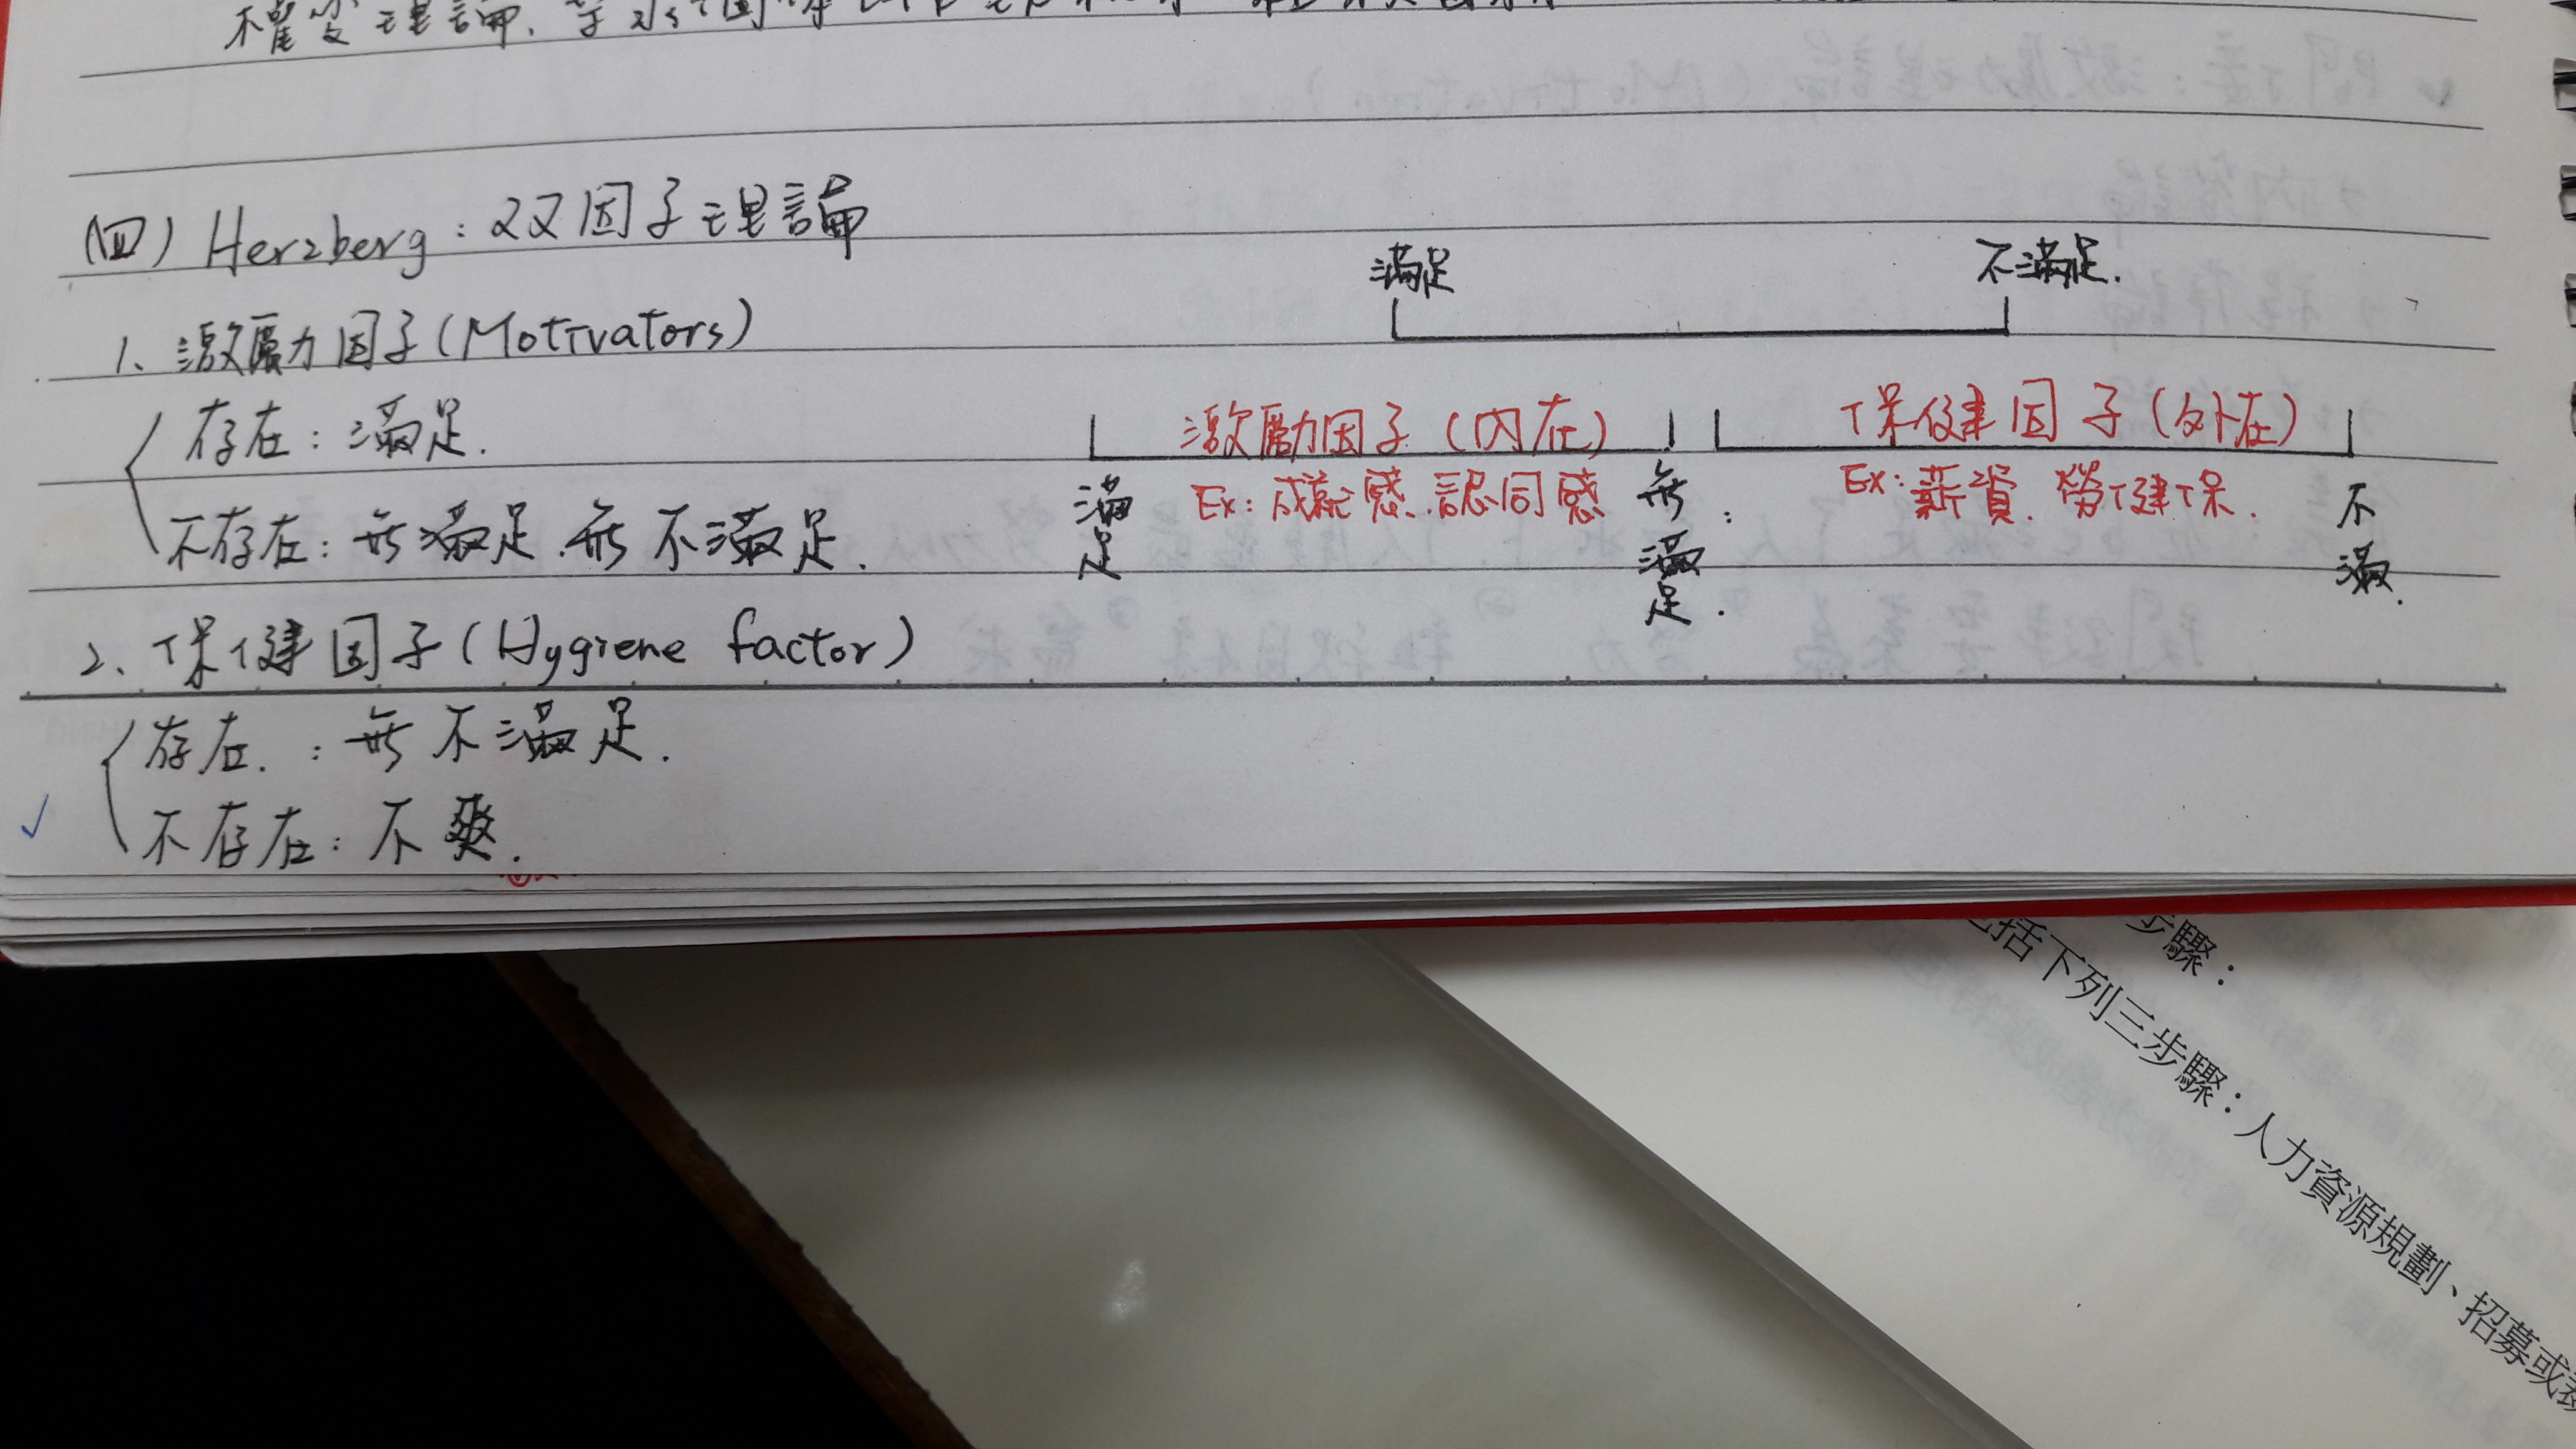 權變理論、
(四) Herzberg：双因子理論
1、激勵因子(Motivators)
存在：滿足.
不存在：無滿足.無不滿足.
2、保健因子(Hygiene factor)
存在.：無不滿足.
不存在：不爽.
滿足 不滿足.
激勵因子(內在) 保健因子(外在)
Ex：成就感、認同感 Ex：薪資、勞健保.
滿足 無滿足. 不滿.
步驟：
括下列三步驟：人力資源規劃、招募或